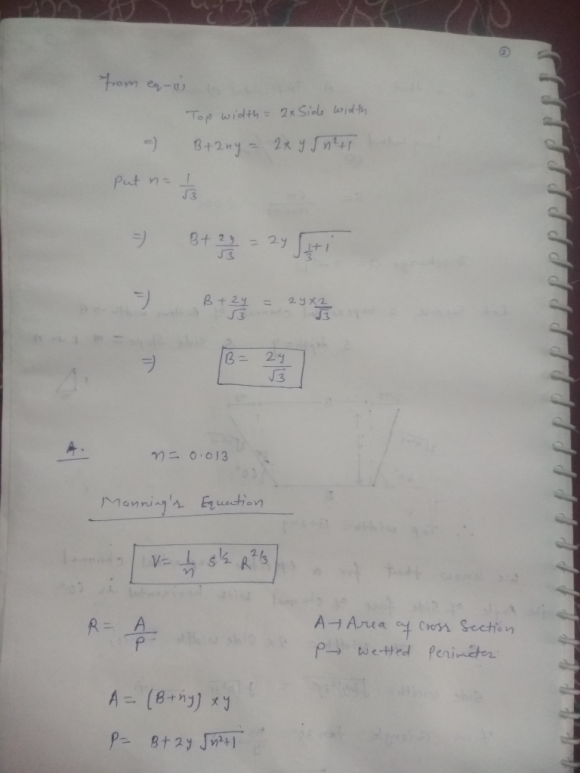 ②
from eq-(i)
Top width = 2x Side width
=) B+2ny = 2x y √n²+1
Put n = 1/√3
=) B + 2y/√3 = 2y √(1/3 + 1)
=) B + 2y/√3 = 2y x 2/√3
=) B = 2y/√3
A. n = 0.013
Manning's Equation
V = 1/n S^1/2 R^2/3
R = A/P A → Area of Cross Section
P → Wetted Perimeter
A = (B+ny) xy
P = B + 2y √n²+1